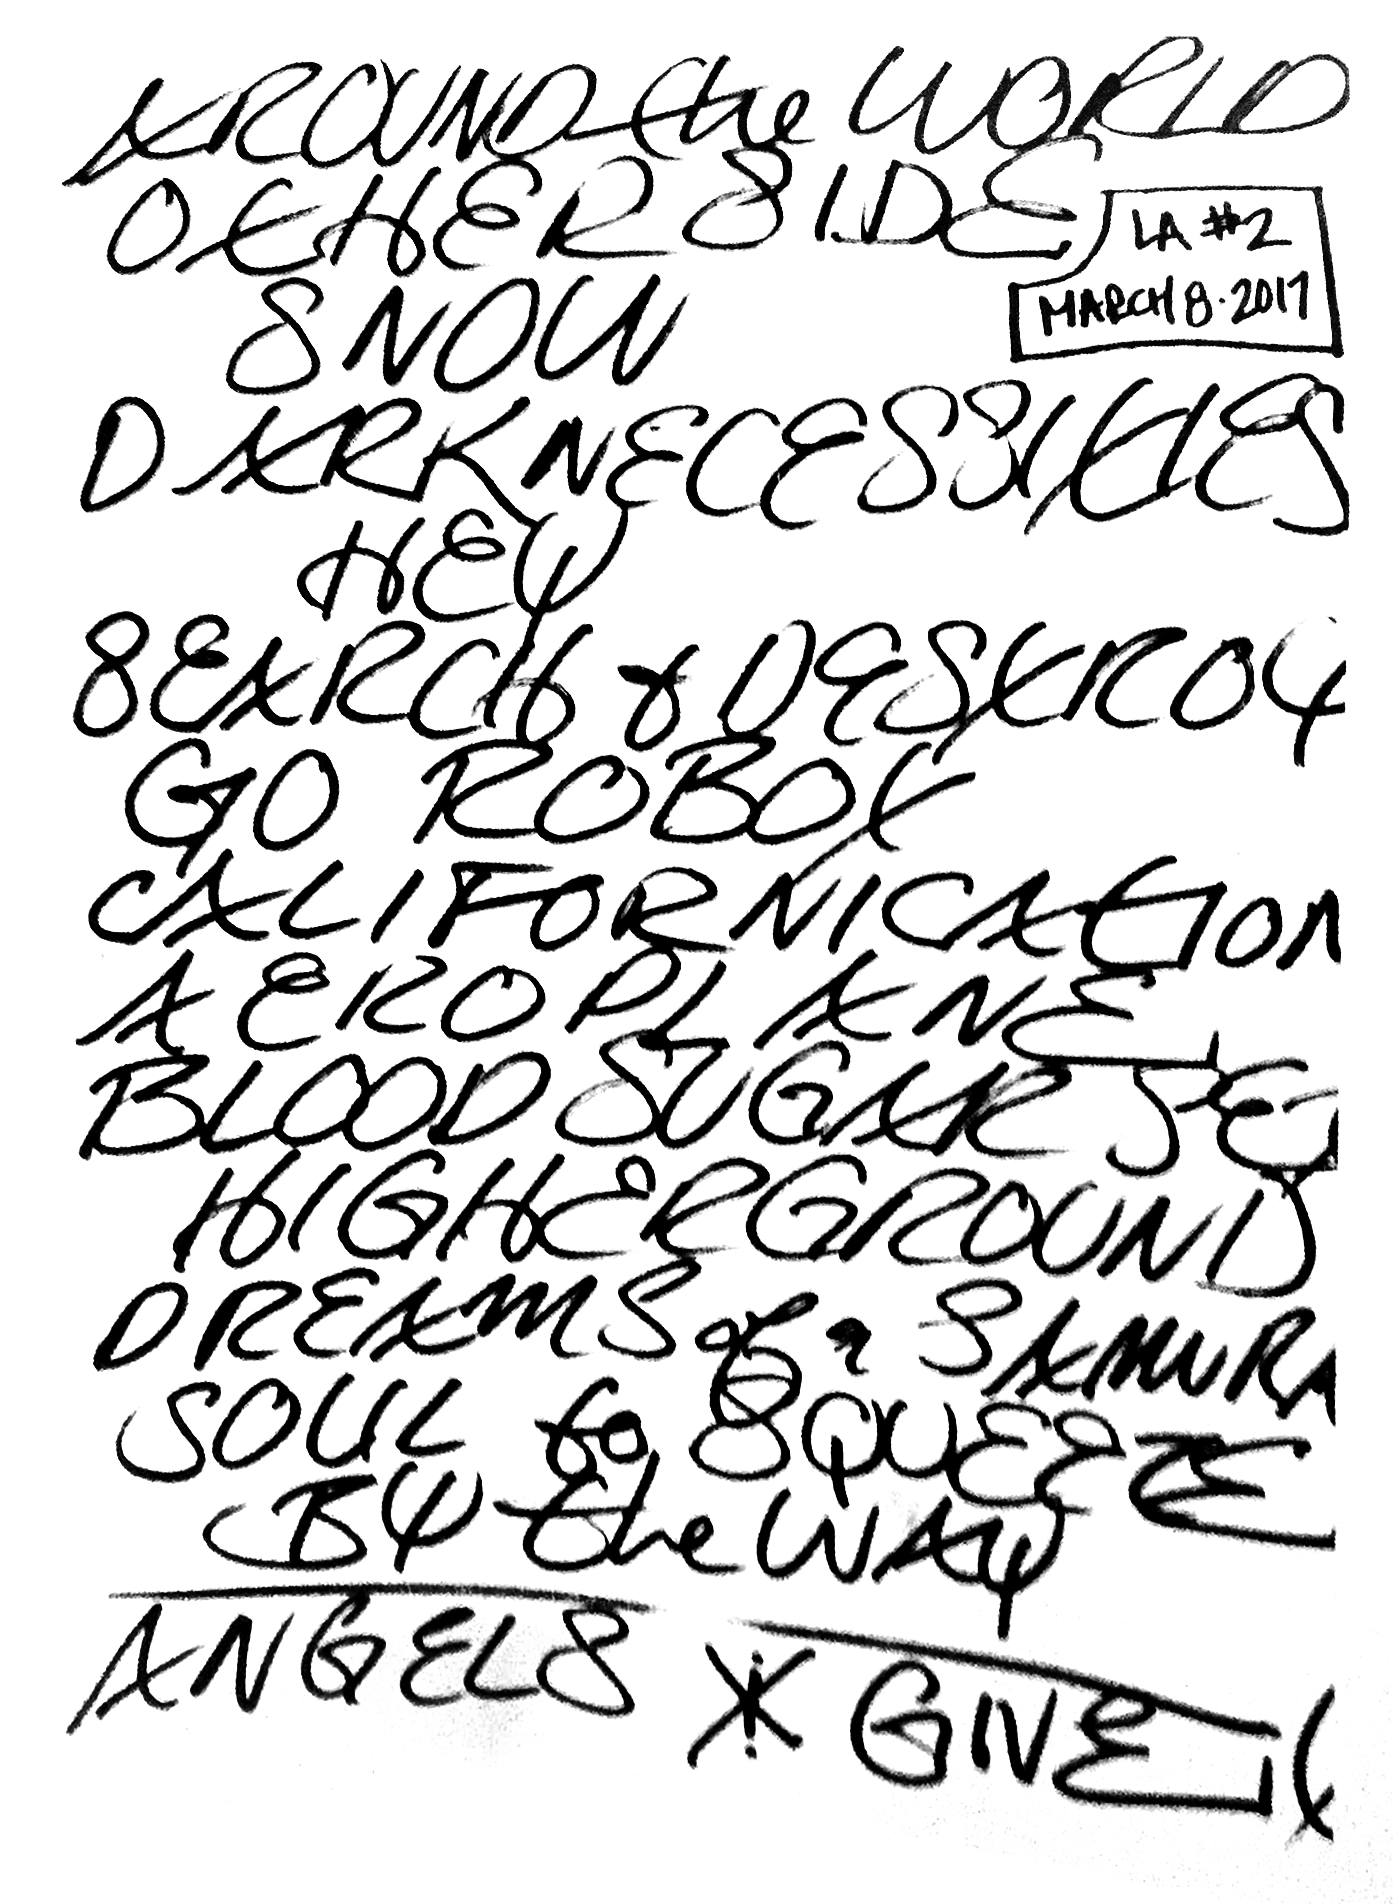 AROUND the WORLD
OTHERSIDE
LA #2
MARCH 8.2017
SNOW
DARK NECESSITIES
HEY
SEARCH & DESTROY
GO ROBOT
CALIFORNICATION
AEROPLANE
BLOOD SUGAR SE
HIGHER GROUND
DREAMS of a SAMURA
SOUL to SQUEEZE
BY the WAY
ANGELS * GIVE it